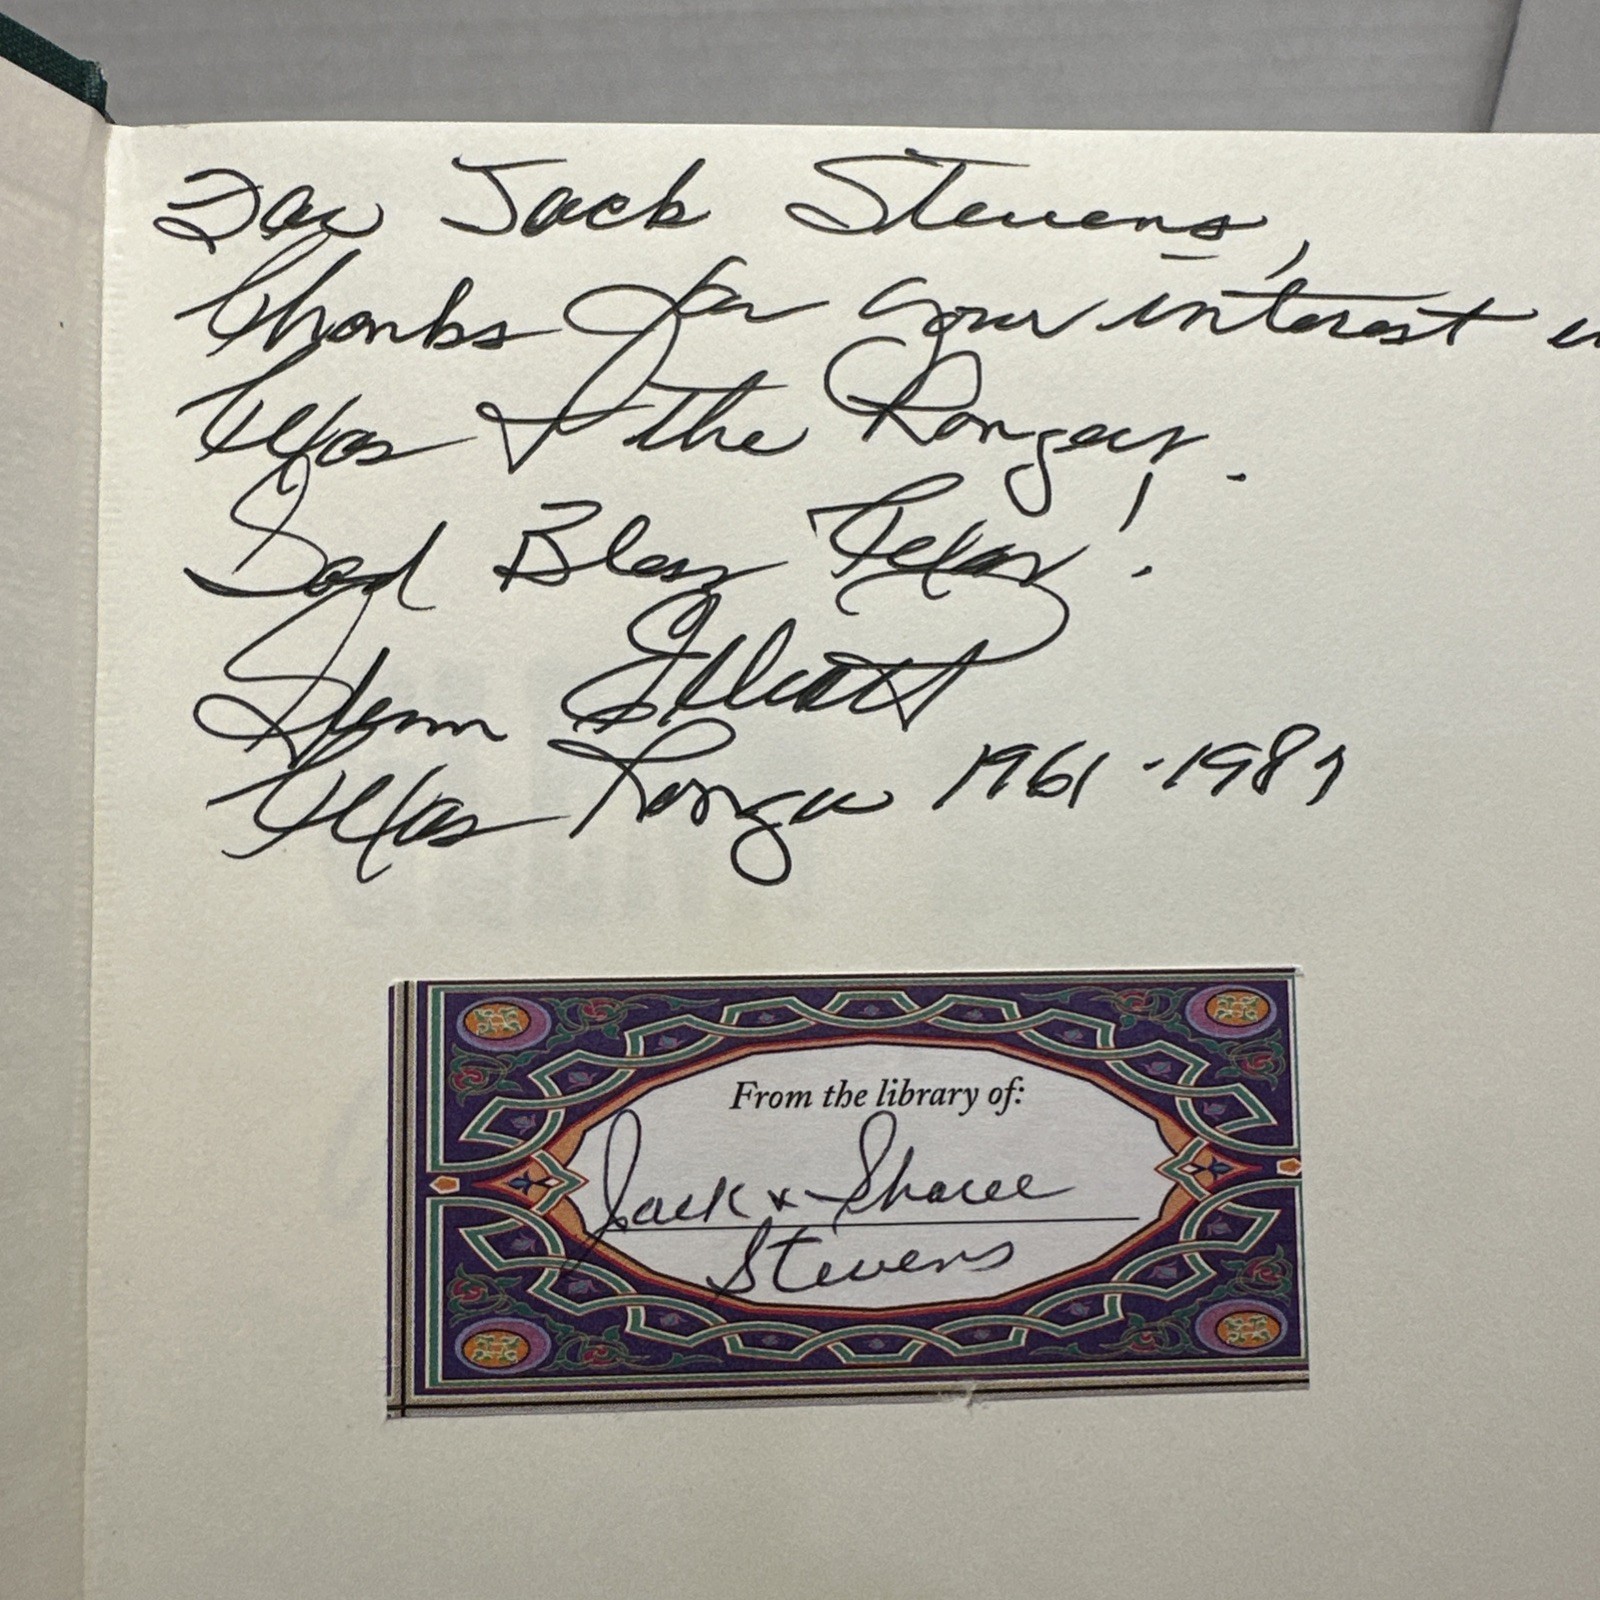 For Jack Stevens,
Thanks for your interest in
Texas & the Rangers.
God Bless Texas!
Glenn Elliott
Texas Ranger 1961-1987
From the library of:
Jack & Sharee
Stevens